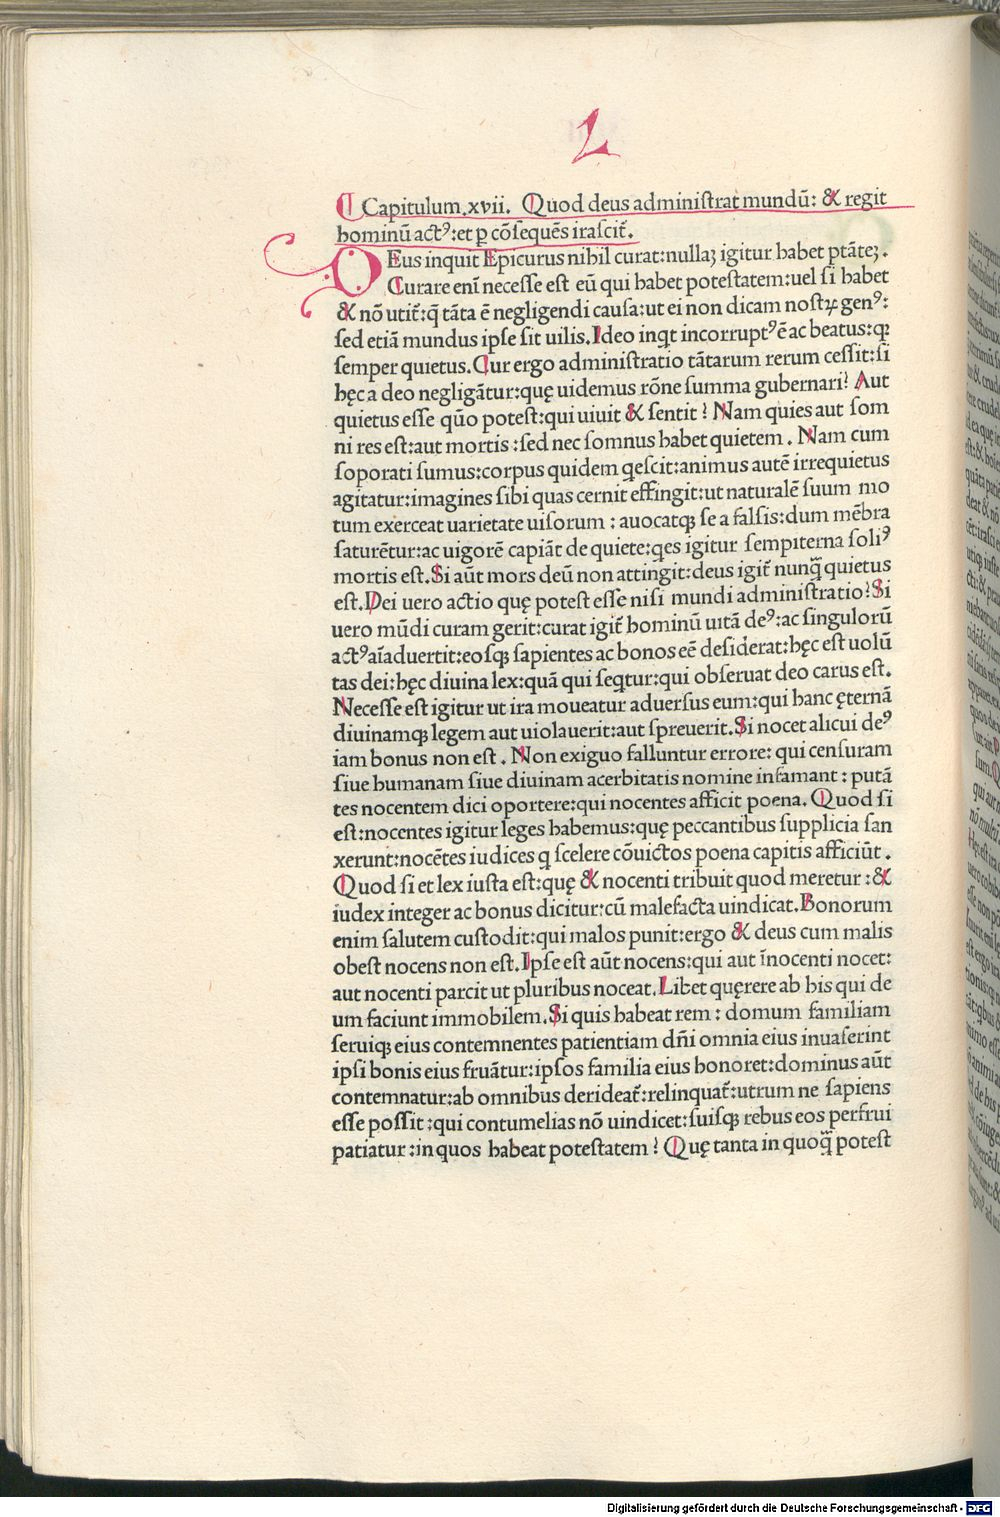 L
¶ Capitulum.xvii. Quod deus administrat mundū: & regit
hominū actꝰ:et ꝑ cōsequēs irascit᷑.
DEus inquit Epicurus nihil curat:nullaꝫ igitur habet ptāteꝫ.
Curare enī necesse est eū qui habet potestatem:uel si habet
& nō utit᷑:q̄ tāta ē negligendi causa:ut ei non dicam nostꝝ genꝰ:
sed etiā mundus ipse sit uilis.Ideo inqt incorruptꝰ ē ac beatus:qꝫ
semper quietus.Cur ergo administratio tātarum rerum cessit:si
hęc a deo negligātur:quę uidemus rōne summa gubernari? Aut
quietus esse quō potest:qui uiuit & sentit? Nam quies aut som
ni res est:aut mortis:sed nec somnus habet quietem. Nam cum
soporati sumus:corpus quidem qescit:animus autē irrequietus
agitatur:imagines sibi quas cernit effingit:ut naturalē suum mo
tum exerceat uarietate uisorum: auocatqꝫ se a falsis:dum mēbra
saturētur:ac uigorē capiāt de quiete:qes igitur sempiterna soliꝰ
mortis est.Si aūt mors deū non attingit:deus igit᷑ nunq̄ quietus
est.Dei uero actio quę potest esse nisi mundi administratio?Si
uero mūdi curam gerit:curat igit᷑ hominū uitā deꝰ:ac singulorū
actꝰ aīaduertit:eosqꝫ sapientes ac bonos eē desiderat:hęc est uolū
tas dei:hęc diuina lex:quā qui seqtur:qui obseruat deo carus est.
Necesse est igitur ut ira moueatur aduersus eum:qui hanc ęternā
diuinamqꝫ legem aut uiolauerit:aut spreuerit.Si nocet alicui deꝰ
iam bonus non est. Non exiguo falluntur errore: qui censuram
siue humanam siue diuinam acerbitatis nomine infamant: putā
tes nocentem dici oportere:qui nocentes afficit poena. Quod si
est:nocentes igitur leges habemus:quę peccantibus supplicia san
xerunt:nocētes iudices q scelere cōuictos poena capitis afficiūt.
Quod si et lex iusta est:quę & nocenti tribuit quod meretur:&
iudex integer ac bonus dicitur:cū malefacta uindicat.Bonorum
enim salutem custodit:qui malos punit:ergo & deus cum malis
obest nocens non est.Ipse est aūt nocens:qui aut īnocenti nocet:
aut nocenti parcit ut pluribus noceat.Libet quęrere ab his qui de
um faciunt immobilem.Si quis habeat rem: domum familiam
seruiqꝫ eius contemnentes patientiam dñi omnia eius inuaserint
ipsi bonis eius fruātur:ipsos familia eius honoret:dominus aūt
contemnatur:ab omnibus derideat᷑:relinquat᷑:utrum ne sapiens
esse possit:qui contumelias nō uindicet:suisqꝫ rebus eos perfrui
patiatur:in quos habeat potestatem? Quę tanta in quoq̄ potest
Digitalisierung gefördert durch die Deutsche Forschungsgemeinschaft - DFG